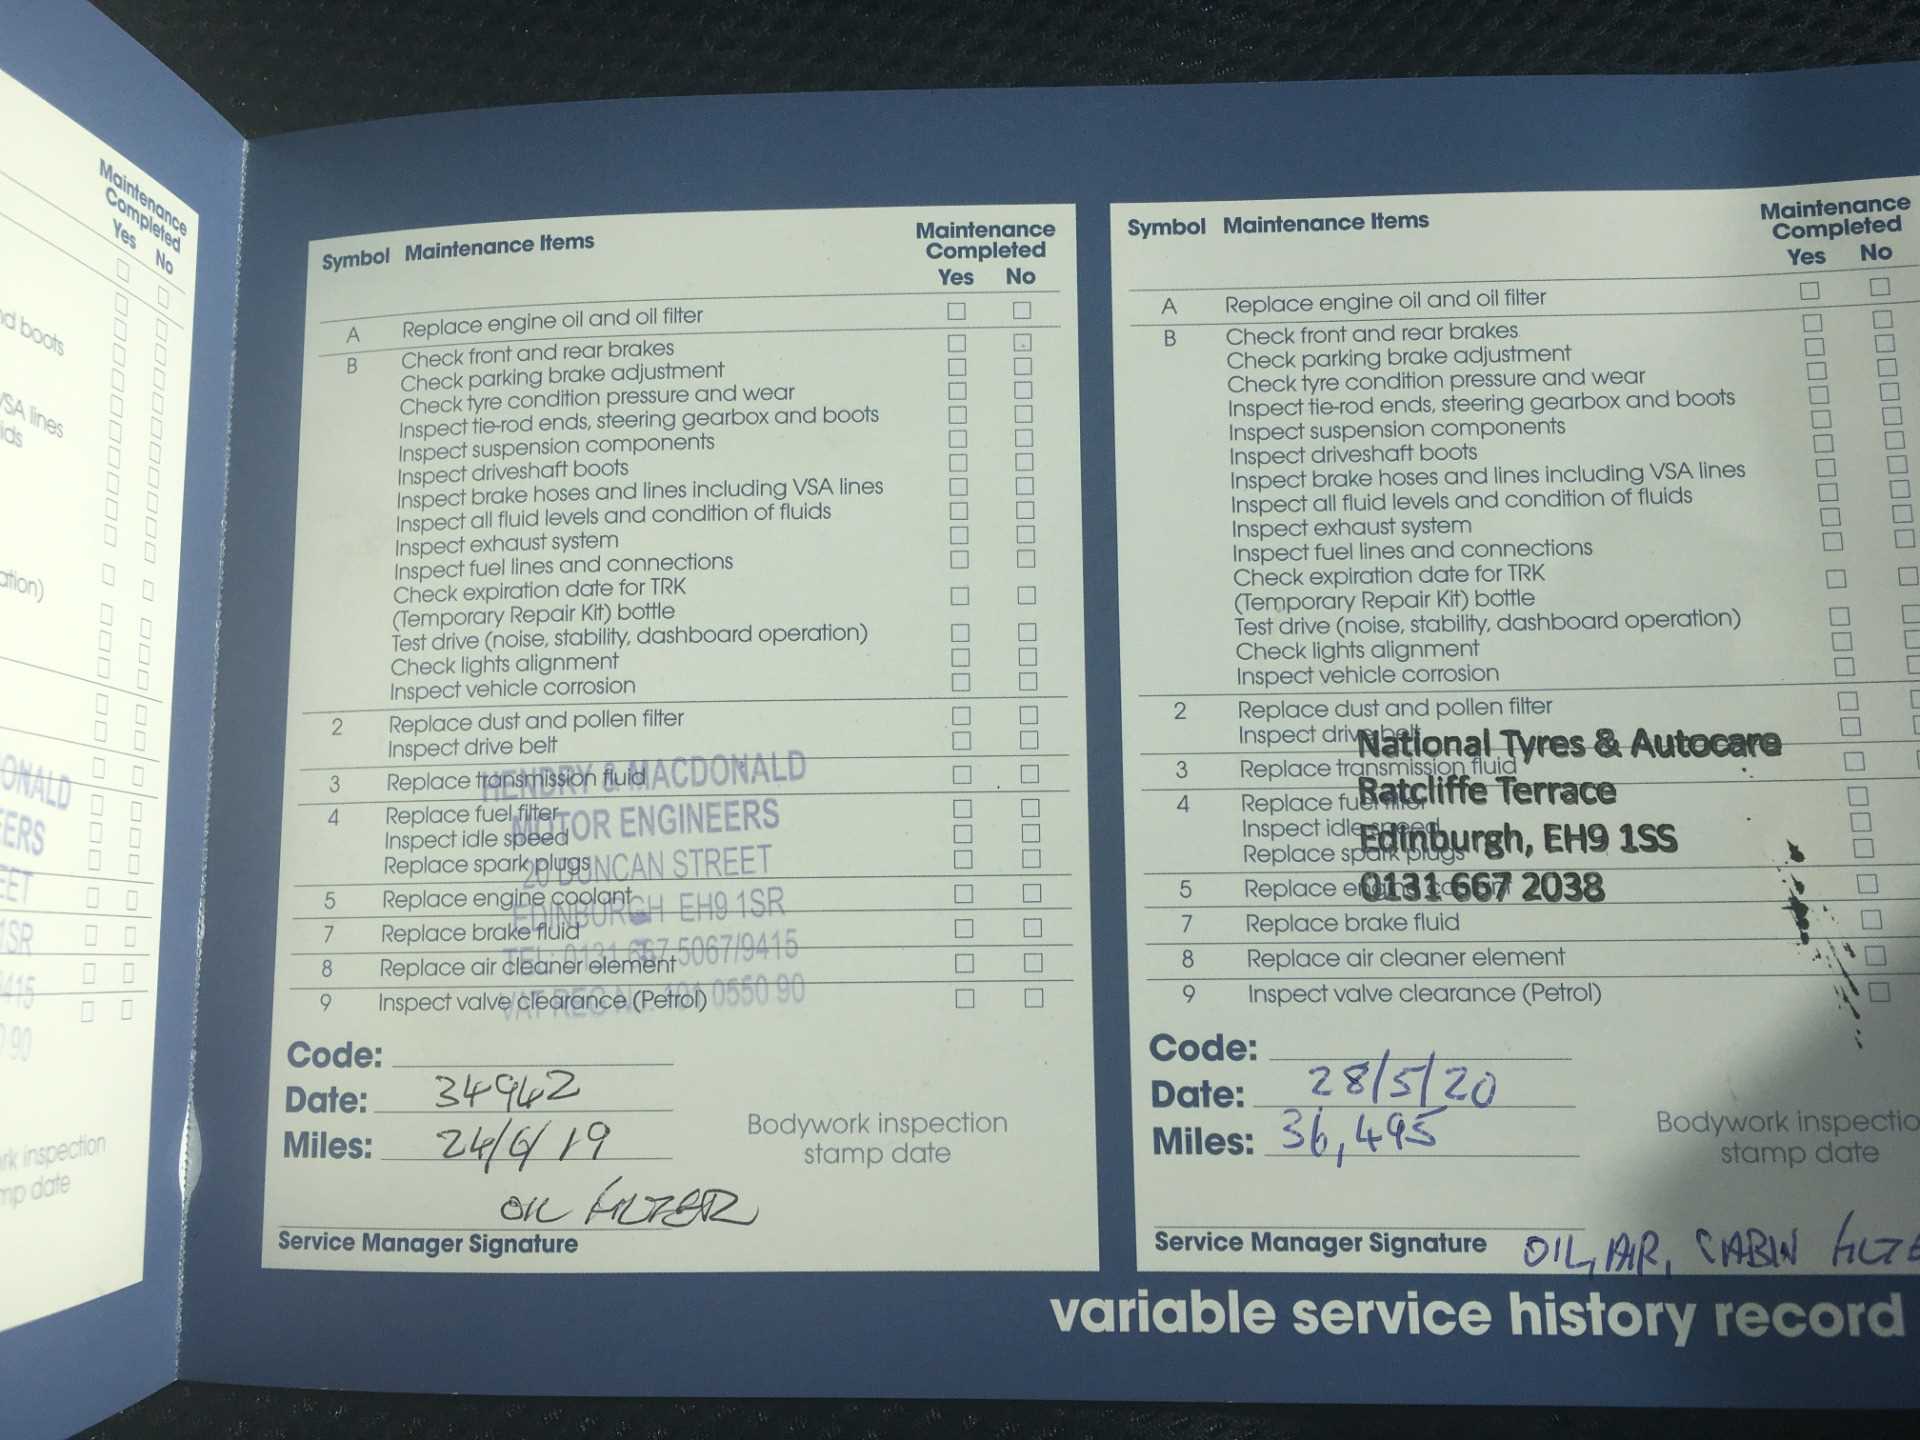 Maintenance
Completed
Yes No
d boots
VSA lines
ids
ation)
ONALD
EERS
EET
1SR
415
0 90
rk inspection
mp date
Symbol Maintenance Items Maintenance
Completed
Yes No
A Replace engine oil and oil filter
B Check front and rear brakes
Check parking brake adjustment
Check tyre condition pressure and wear
Inspect tie-rod ends, steering gearbox and boots
Inspect suspension components
Inspect driveshaft boots
Inspect brake hoses and lines including VSA lines
Inspect all fluid levels and condition of fluids
Inspect exhaust system
Inspect fuel lines and connections
Check expiration date for TRK
(Temporary Repair Kit) bottle
Test drive (noise, stability, dashboard operation)
Check lights alignment
Inspect vehicle corrosion
2 Replace dust and pollen filter
Inspect drive belt
3 Replace transmission fluid
4 Replace fuel filter
Inspect idle speed
Replace spark plugs
5 Replace engine coolant
7 Replace brake fluid
8 Replace air cleaner element
9 Inspect valve clearance (Petrol)
HENDRY & MACDONALD
MOTOR ENGINEERS
20 DUNCAN STREET
EDINBURGH EH9 1SR
TEL: 0131 667 5067/9415
VAT REG No. 0550 90
Code:
Date: 34942
Miles: 24/6/19
OIL FILTER
Service Manager Signature
Bodywork inspection
stamp date
Symbol Maintenance Items Maintenance
Completed
Yes No
A Replace engine oil and oil filter
B Check front and rear brakes
Check parking brake adjustment
Check tyre condition pressure and wear
Inspect tie-rod ends, steering gearbox and boots
Inspect suspension components
Inspect driveshaft boots
Inspect brake hoses and lines including VSA lines
Inspect all fluid levels and condition of fluids
Inspect exhaust system
Inspect fuel lines and connections
Check expiration date for TRK
(Temporary Repair Kit) bottle
Test drive (noise, stability, dashboard operation)
Check lights alignment
Inspect vehicle corrosion
2 Replace dust and pollen filter
Inspect drive belt
3 Replace transmission fluid
4 Replace fuel filter
Inspect idle speed
Replace spark plugs
5 Replace engine coolant
7 Replace brake fluid
8 Replace air cleaner element
9 Inspect valve clearance (Petrol)
National Tyres & Autocare
Ratcliffe Terrace
Edinburgh, EH9 1SS
0131 667 2038
Code:
Date: 28/5/20
Miles: 36,495
Bodywork inspectio
stamp date
Service Manager Signature OIL, AIR, CABIN FILTE
variable service history record